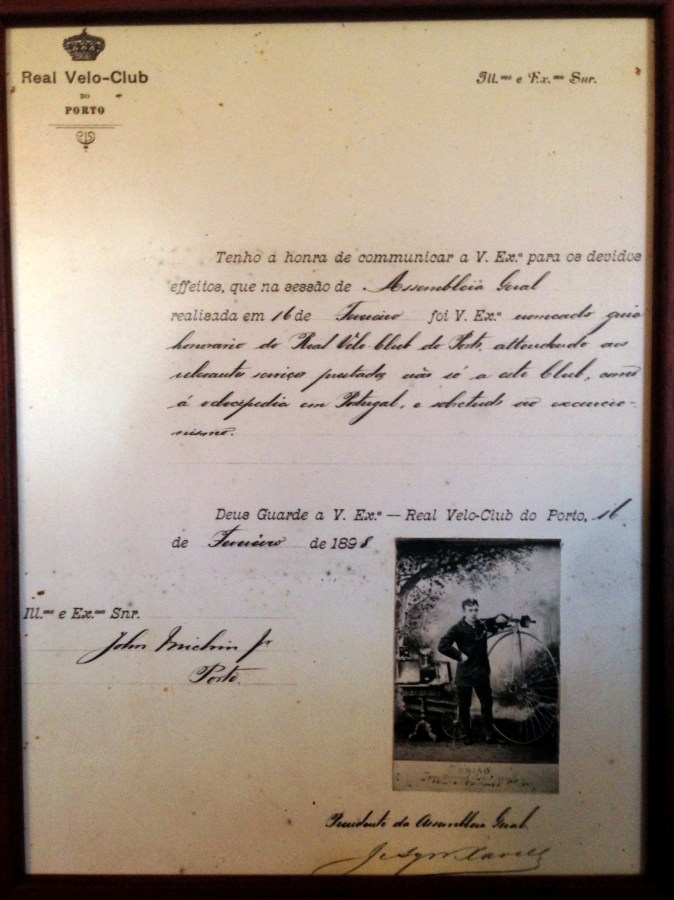 Real Velo-Club
DO
PORTO
Ill.mo e Ex.mo Snr.
Tenho a honra de communicar a V. Ex.a para os devidos
effeitos, que na sessão de Assembleia Geral
realisada em 16 de Fevereiro foi V. Ex.a nomeado guia
honorario do Real Vélo-Club do Porto, attendendo aos
relevantes serviços prestados não só a este Club, como
á velocipedia em Portugal, e sobretudo ao excursio-
nismo.
Deus Guarde a V. Ex.a — Real Velo-Club do Porto, 16
de Fevereiro de 1898
Ill.mo e Ex.mo Snr.
John Jr
Porto.
UNIÃO
Presidente da Assembleia Geral